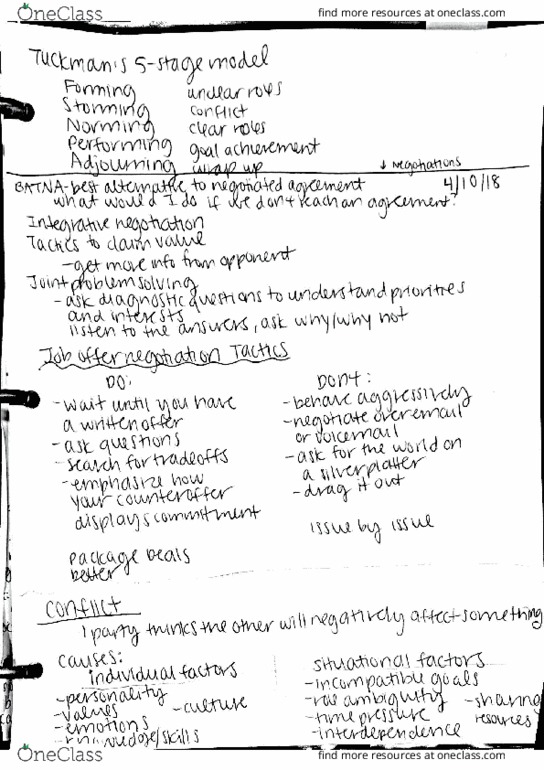 OneClass
find more resources at oneclass.com
Tuckman's 5-stage model
Forming unclear roles
Storming conflict
Norming clear roles
Performing goal achievement
Adjourning wrap up
↓ negotiations
BATNA-best alternative to negotiated agreement 4/10/18
what would I do if we don't reach an agreement?
Integrative negotiation
Tactics to claim value
-get more info from opponent
Joint problem solving
-ask diagnostic questions to understand priorities
and interests
listen to the answers, ask why/why not
Job offer negotiation Tactics
DO:
-wait until you have
a written offer
-ask questions
-search for tradeoffs
-emphasize how
your counteroffer
displays commitment
package deals
better
Don't:
-behave aggressively
-negotiate over email
or voicemail
-ask for the world on
a silver platter
-drag it out
issue by issue
Conflict
1 party thinks the other will negatively affect something
causes:
individual factors
-personality
-values
-culture
-emotions
-knowledge/skills
situational factors
-incompatible goals
-role ambiguity
-sharing
resources
-time pressure
-interdependence
OneClass
find more resources at oneclass.com